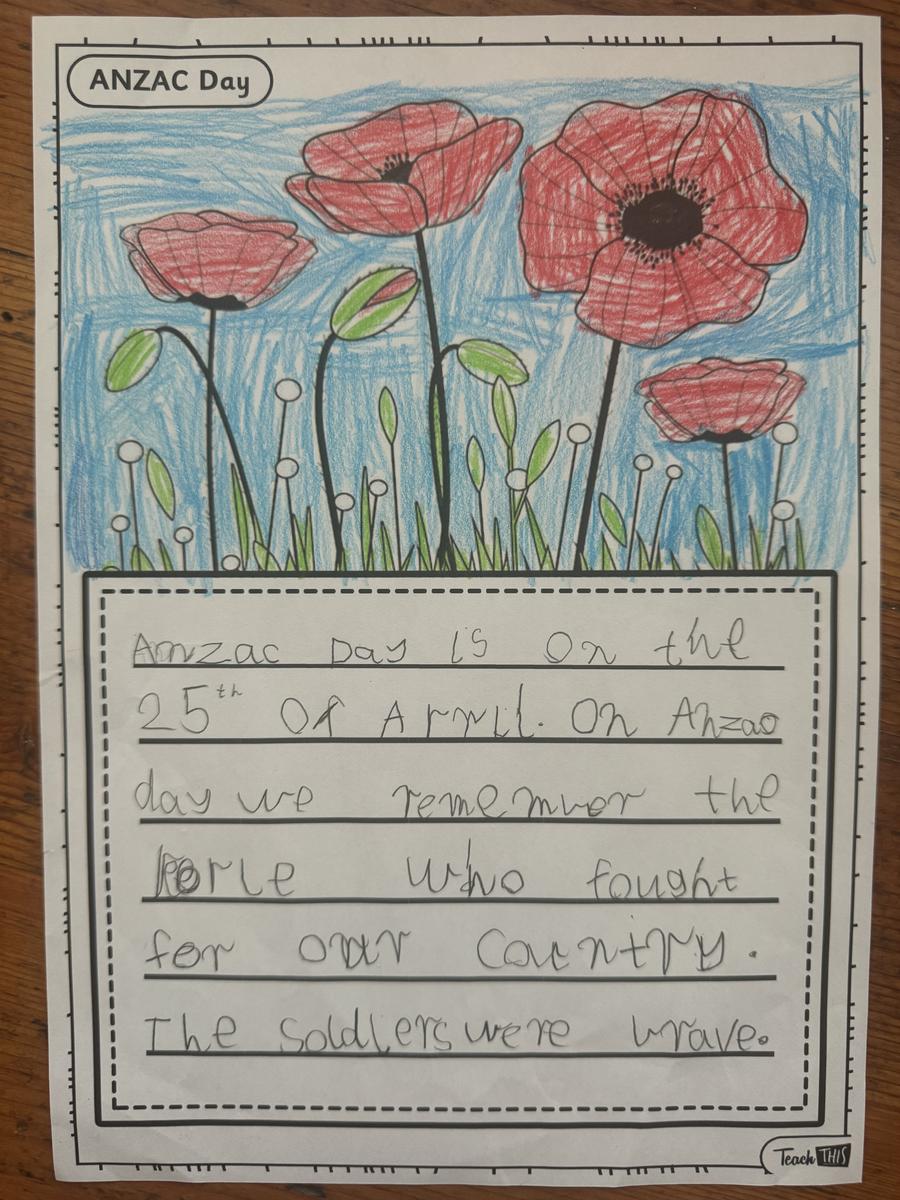 ANZAC Day
Anzac Day is On the
25th Of April. On Anzac
day we remember the
people who fought
for our Country.
The Soldiers were brave.
Teach THIS